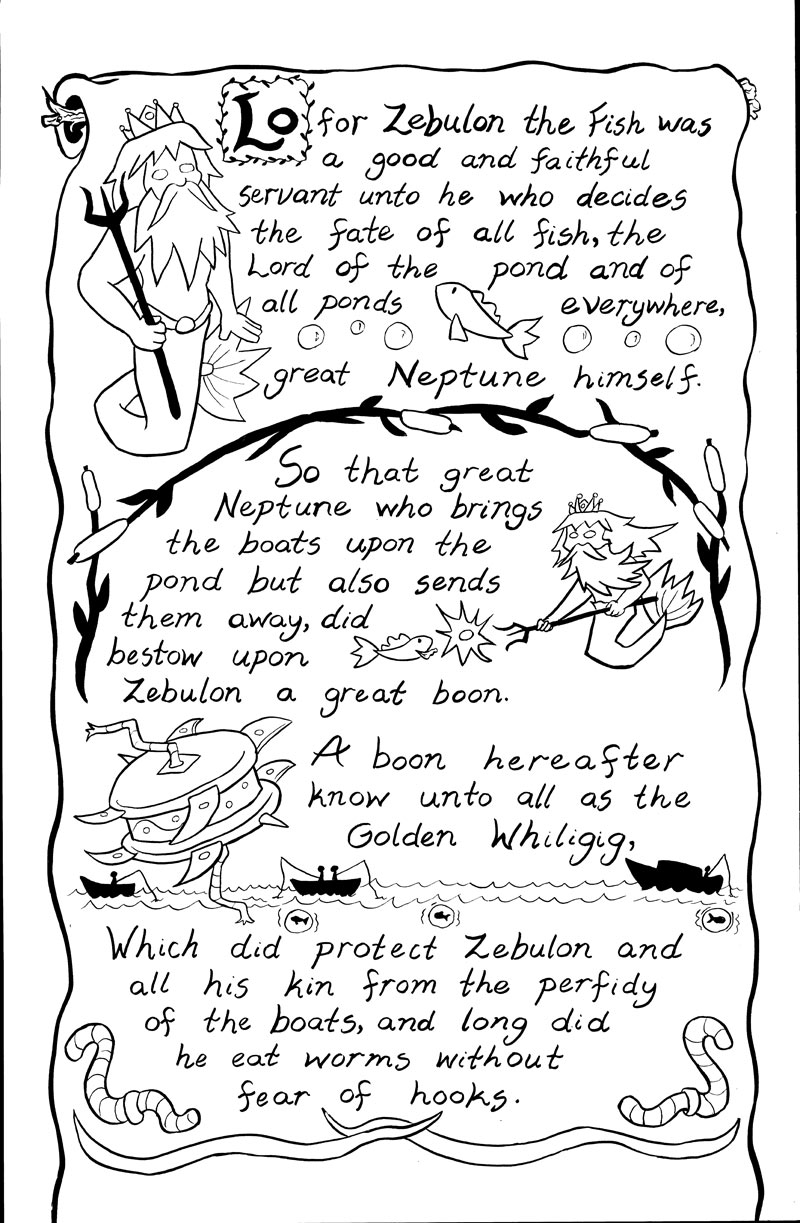 Lo for Zebulon the Fish was
a good and faithful
servant unto he who decides
the fate of all fish, the
Lord of the pond and of
all ponds everywhere,
great Neptune himself.
So that great
Neptune who brings
the boats upon the
pond but also sends
them away, did
bestow upon
Zebulon a great boon.
A boon hereafter
know unto all as the
Golden Whiligig,
Which did protect Zebulon and
all his kin from the perfidy
of the boats, and long did
he eat worms without
fear of hooks.